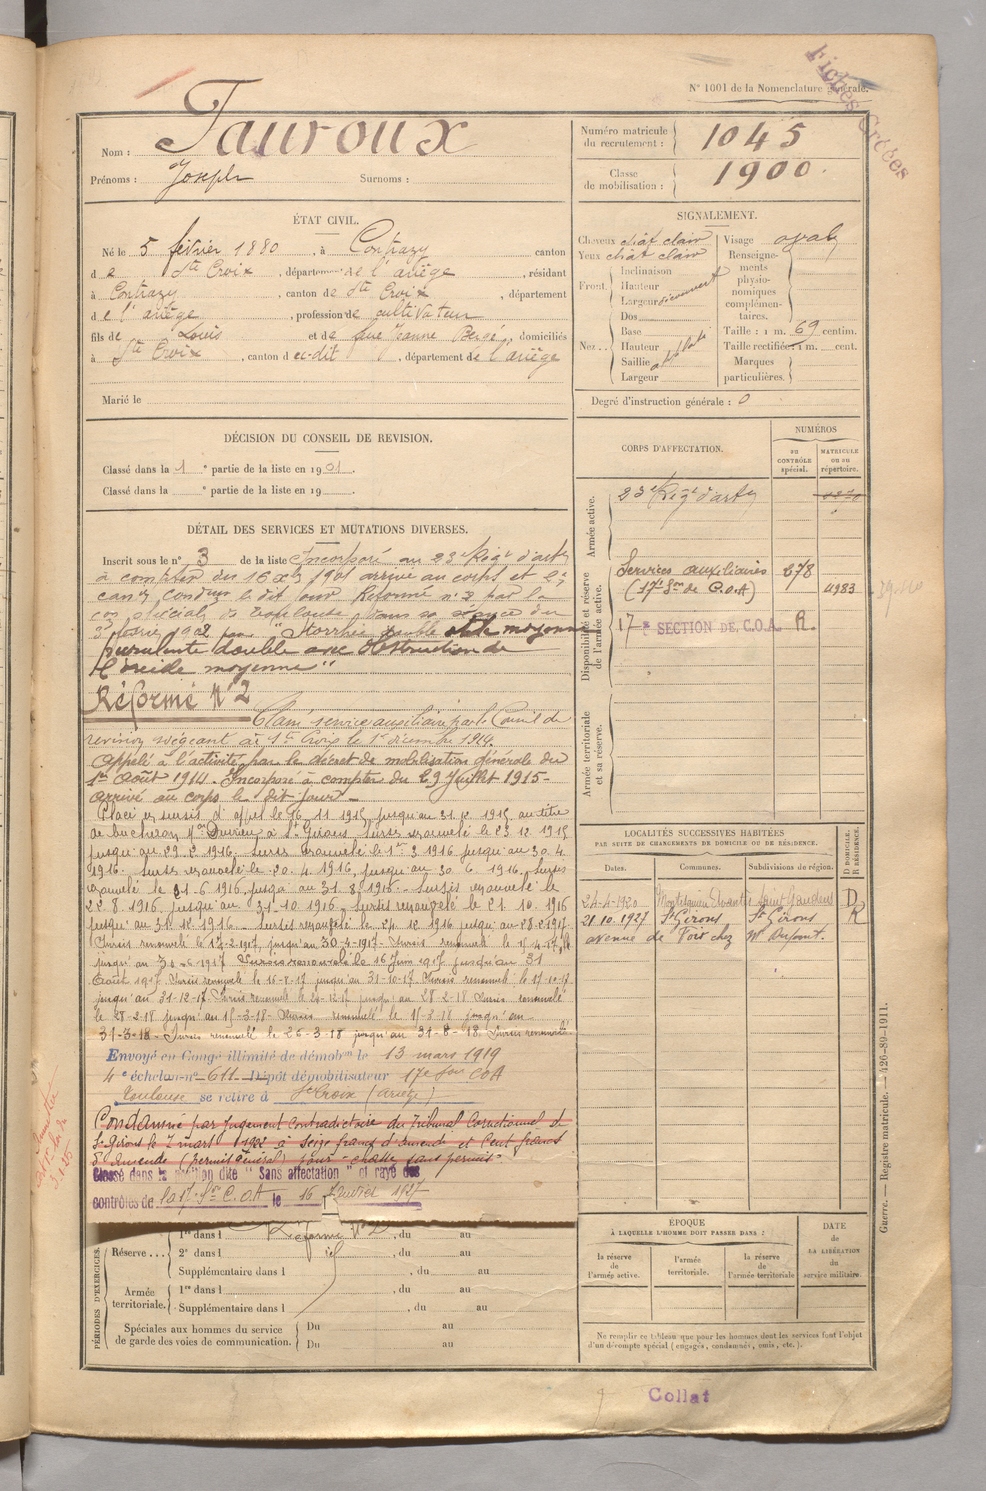 Fiches Créées
N° 1001 de la Nomenclature générale.
Nom : Tauroux
Prénoms : Joseph Surnoms :
Numéro matricule du recrutement : 1045
Classe de mobilisation : 1900.
ÉTAT CIVIL.
Né le 5 février 1880, à Contrazy canton
de Ste Croix, département de l'ariège, résidant
à Contrazy, canton de Ste Croix, département
de l'ariège, profession de cultivateur
fils de Louis et de Jeanne, domiciliés
à Ste Croix, canton du dit, département de l'ariège
Marié le
SIGNALEMENT.
Cheveux chat clair
Yeux chat clair
Front.
Inclinaison
Hauteur
Largeur découvert
Nez..
Dos
Base
Hauteur
Saillie
Largeur
Visage ovale
Renseignements physionomiques complémentaires.
Taille : 1 m. 69 centim.
Taille rectifiée : 1 m. cent.
Marques particulières.
Degré d'instruction générale : 0
DÉCISION DU CONSEIL DE REVISION.
Classé dans la 1e partie de la liste en 1901.
Classé dans la e partie de la liste en 19 .
DÉTAIL DES SERVICES ET MUTATIONS DIVERSES.
Inscrit sous le n° 3 de la liste Incorporé au 23e Régt d'art
à compter du 16 Xbre 1901 arrivé au corps et 2e
can conduc le dit jour Réformé n° 2 par la
con spéciale de Toulouse dans sa séance du
février 1902 pour "Otorrhée double
purulente double avec obstruction de
moyenne"
Réformé N° 2
Classé service auxiliaire par le Conseil de
revision siégeant à Ste Croix le 1er décembre 1914.
Appelé à l'activité par le décret de mobilisation générale du
1er Août 1914. Incorporé à compter du 29 Juillet 1915-
arrivé au corps le dit jour.
Placé en sursis d'appel le 16 11 1915 jusqu'au 31 12 1915 au titre
de bûcheron Mon à St Girons. Sursis renouvelé le 23 12 1915
jusqu'au 29 2 1916. Sursis renouvelé le 1er 3 1916 jusqu'au 30 4
1916. Sursis renouvelé le 20 4 1916, jusqu'au 30 6 1916. Sursis
renouvelé le 21-6 1916 jusqu'au 31 8 1916. Sursis renouvelé le
22.8 1916 jusqu'au 31-10 1916. Sursis renouvelé le 21 10 1916
jusqu'au 31 12 1916. Sursis renouvelé le 24 12 1916 jusqu'au 28-2 1917.
Sursis renouvelé le 17-2-1917, jusqu'au 30-4-1917. Sursis renouvelé le 15-4-17,
jusqu'au 30-6-1917 Sursis renouvelé le 16 Juin 1917 jusqu'au 31
Août 1917. Sursis renouvelé le 16-8-17 jusqu'au 31-10-17. Sursis renouvelé le 17-10-17
jusqu'au 31-12-17. Sursis renouvelé le 24-12-17 jusqu'au 28-2-18 Sursis renouvelé
le 28-2-18 jusqu'au 15-3-18- Sursis renouvelé le 15-3-18 jusqu'au
31-3-18- Sursis renouvelé le 26-3-18 jusqu'au 31-8-18. Sursis renouvelé
Envoyé en Congé illimité de démobon le 13 mars 1919
4e échelon n° 611 Dépôt démobilisateur 17e Son COA
Toulouse se retire à Ste Croix (Ariège)
Condamné par jugement contradictoire du Tribunal Correctionnel de
St-Girons le 7 mars 1902 à Seize francs d'amende et Cent francs
d'amende (permis général) pour chasse sans permis
Classé dans la position dite "Sans affectation" et rayé des
contrôles de la 17e Son C.O.A le 16 Janvier 1927
PÉRIODES D'EXERCICES.
Réserve...
1re dans l Réformé N° 2, du au
2e dans l , du au
Supplémentaire dans l , du au
Armée territoriale.
1re dans l , du au
Supplémentaire dans l , du au
Spéciales aux hommes du service de garde des voies de communication.
Du au
Du au
CORPS D'AFFECTATION.
NUMÉROS
au CONTRÔLE spécial.
MATRICULE ou au répertoire.
Armée active.
23e Régt d'arty
Disponibilité et réserve de l'armée active.
Services auxiliaires 278
(17e Son de C.O.A) 4983
17e SECTION DE C.O.A. R.
Armée territoriale et sa réserve.
LOCALITÉS SUCCESSIVES HABITÉES
PAR SUITE DE CHANGEMENTS DE DOMICILE OU DE RÉSIDENCE.
D DOMICILE. R RÉSIDENCE.
Dates. Communes. Subdivisions de région.
24-4-1920 Montesquieu Avantès Saint Gaudens D
21.10.1927 St Girons St Girons R
avenue de Foix chez Mr Dupont.
ÉPOQUE
À LAQUELLE L'HOMME DOIT PASSER DANS :
la réserve de l'armée active.
l'armée territoriale.
la réserve de l'armée territoriale
DATE de LA LIBÉRATION du service militaire.
Ne remplir ce tableau que pour les hommes dont les services font l'objet
d'un décompte spécial (engagés, condamnés, omis, etc.).
Guerre. — Registre matricule. — 426-89-1911.
Collat